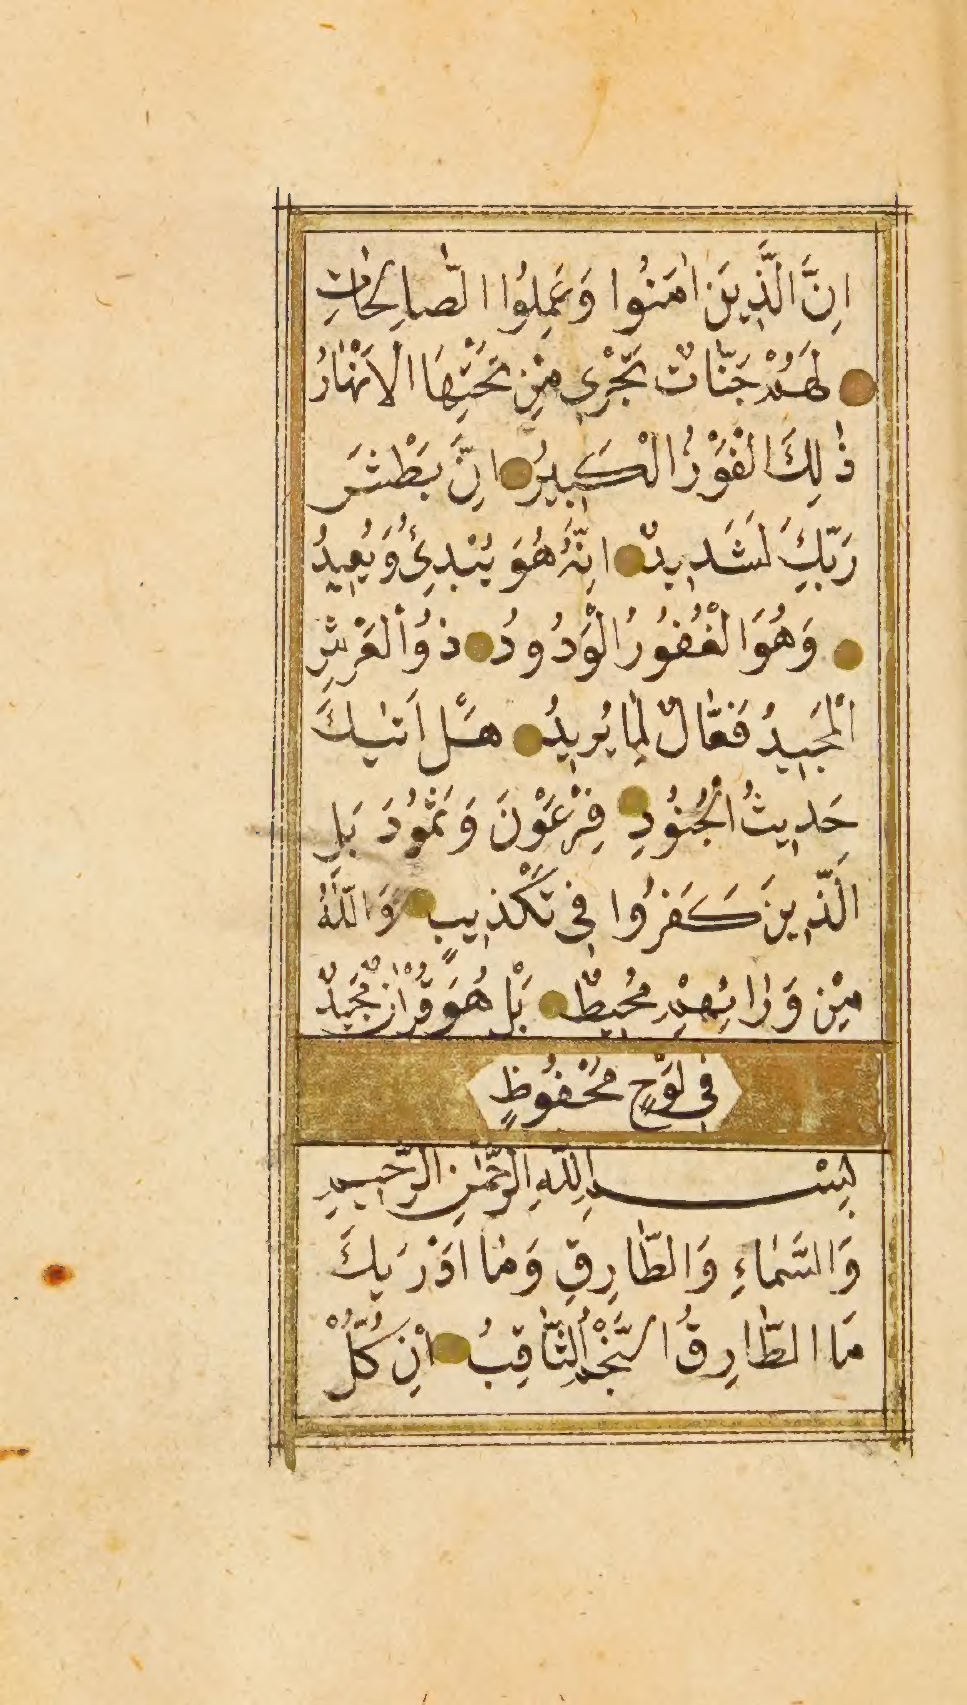 اِنَّ الَّذِينَ اٰمَنُوا وَعَمِلُوا الصَّالِحَاتِ
لَهُمْ جَنَّاتٌ تَجْرِي مِنْ تَحْتِهَا الْاَنْهَارُ
ذٰلِكَ الْفَوْزُ الْكَبِيرُ اِنَّ بَطْشَ
رَبِّكَ لَشَدِيدٌ اِنَّهُ هُوَ يُبْدِئُ وَيُعِيدُ
وَهُوَ الْغَفُورُ الْوَدُودُ ذُو الْعَرْشِ
الْمَجِيدُ فَعَّالٌ لِمَا يُرِيدُ هَلْ اَتٰيكَ
حَدِيثُ الْجُنُودِ فِرْعَوْنَ وَثَمُودَ بَلِ
الَّذِينَ كَفَرُوا فِي تَكْذِيبٍ وَاللّٰهُ
مِنْ وَرَائِهِمْ مُحِيطٌ بَلْ هُوَ قُرْاٰنٌ مَجِيدٌ
فِي لَوْحٍ مَحْفُوظٍ
بِسْمِ اللّٰهِ الرَّحْمٰنِ الرَّحِيمِ
وَالسَّمَاءِ وَالطَّارِقِ وَمَا اَدْرٰيكَ
مَا الطَّارِقُ النَّجْمُ الثَّاقِبُ اِنْ كُلُّ